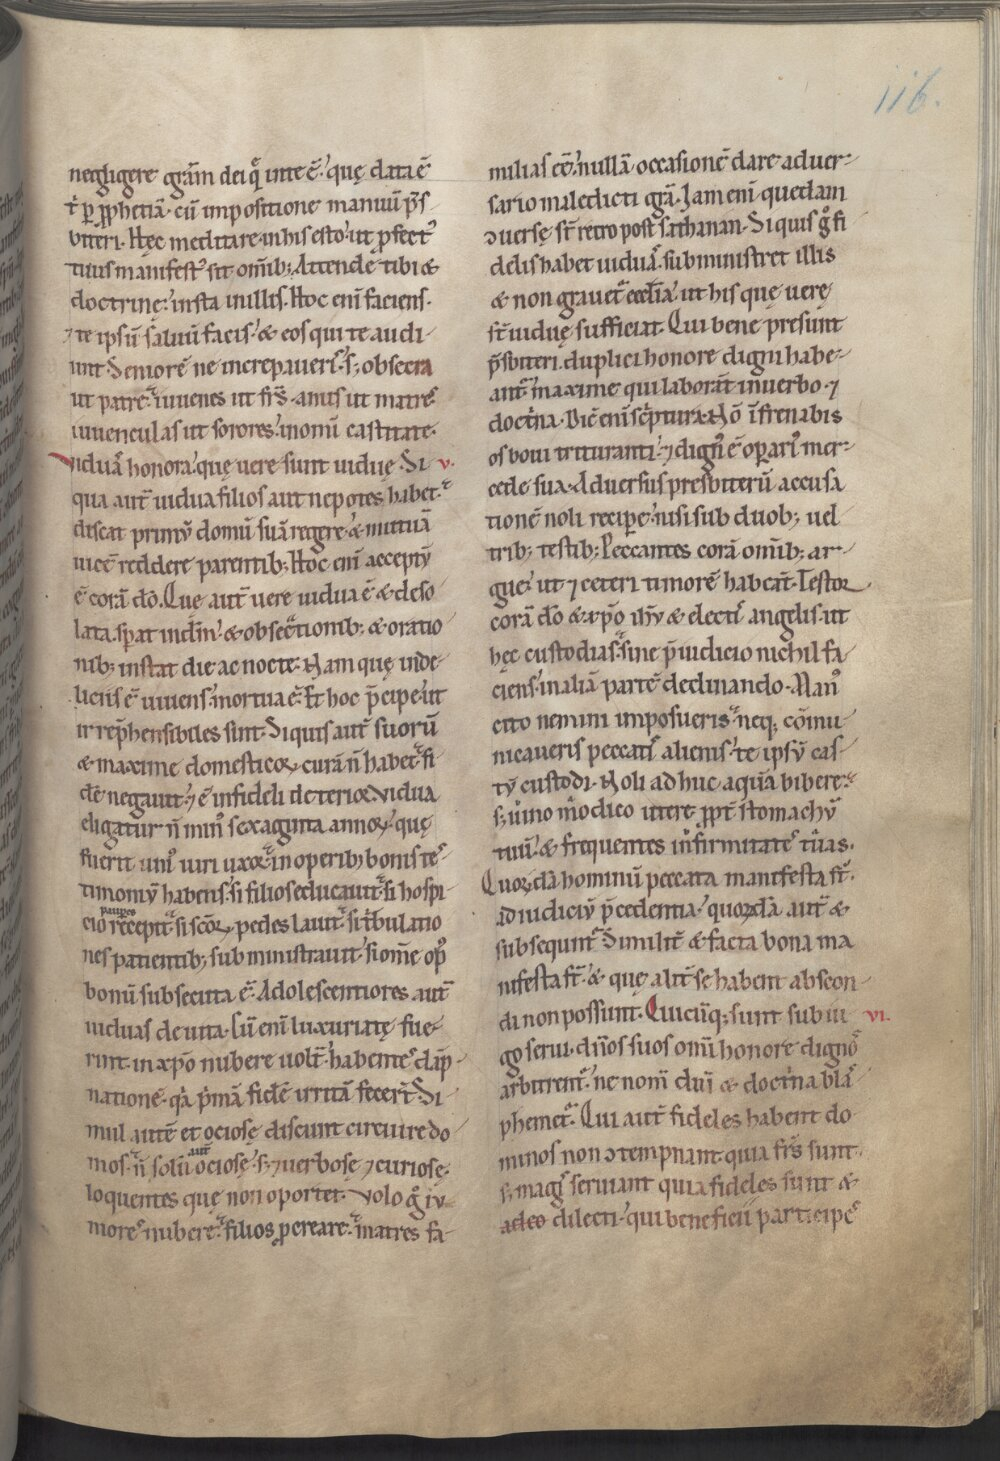 116.
neghgere grām dei q̄ inte ē. quę data ē
t̄ ꝑ ꝓphetiā. cū impositione manuū p̄s
biteri. Hęc meditare. in his esto. ut ꝓfect᷒
tuus manifest᷒ sit om̄ib; Attende tibi &
doctrinę. insta inillis. Hoc eni faciens.
⁊ te ipsū saluū facis. & eos qui te audi
unt. Seniorē ne increpaueris. s; obsecra
ut patrē. iuuenes ut fr̄s. anus ut matres
iuuenculas ut sorores. inomī castitate.
Viduā honora. quę uere sunt uiduę. Si v.
qua aut̄ uidua filios aut nepotes habet.
discat primū domū suā regere. & mutuā
uicē reddere parentib; Hoc eni acceptū
ē corā dō. Quę aut̄ uere uidua ē & deso
lata. sperat indn̄m. & obsecr̄tionib; & oratio
nib; instat die ac nocte. Nam quę inde
liciis ē uiuens. mortua ē. Et hoc p̄cipe ut
irrep̄hensibiles sint. Si quis aut̄ suorū
& maxime domesticoꝝ curā n̄ habet. fi
dē negauit. ⁊ ē infideli deterior. Vidua
eligatur n̄ min᷒ sexaginta annoꝝ. quę
fuerit uni᷒ uiri uxor. in operib; bonis tes
timoniū habens. si filios educauit. si hospi
cio pauperes recepit. si sc̄oꝝ pedes lauit. si t̄bulatio
nes patientib; subministrauit. si omē op᷒
bonū subsecuta ē. Adolescentiores aut̄
uiduas deuita. Cū eni luxuriatę fue
rint. in xp̄o nubere uolt̄. habentes dāp
nationē. q̄a p̄mā fidē irritā fecer̄t. Si
mul autē et ociosę discunt circuire do
mos. n̄ solū aut̄ ociosę. s; ⁊ uerbosę ⁊ curiosę.
loquentes que non oportet. Volo g̊ iu
niores nubere. filios ꝓcreare. matres fa
milias eē. nullā occasionē dare aduer
sario maledicti gr̄a. Jam eni quedam
ↄuersę st̄ retro post sathanan. Si quis g̊ fi
delis habet uiduā. subministret illis
& non grauet̄ ecclīa. ut his que uerę
st̄ uiduę sufficiat. Qui bene presunt
p̄sbiteri. duplici honore digni habe
ant̄. maxime qui laborāt in uerbo. ⁊
doct̄na. Dic̄ eni sc̄ptura. Nō īfrenabis
os boui trituranti. ⁊ dign᷒ ē oꝑari᷒ mer
cede sua. Aduersus presbiterū accusa
tionē noli recipe. nisi sub duob; uel
trib; testib; Peccantes corā om̄ib; ar
gue. ut ⁊ ceteri timorē habeāt. Testor
corā dō & xp̄o ih̄u & electis angelis. ut
hęc custodias. sine p̄iudicio nichil fa
ciens. inaliā partē declinando. Man᷒
cito nemini imposueris. neq; cōmu
nicaueris peccatis alienis. te ipsū cas
tū custodi. Noli adhuc aquā bibere.
s; uino modico utere ꝓpt̄ stomachū
tuū. & frequentes infirmitates tuas.
Quordā hominū peccata manifesta st̄.
ad iudiciū p̄cedentia. quordā aut̄ &
subsequnt̄. Similit̄ & facta bona ma
nifesta st̄. & quę alit̄ se habent abscon
di non possunt. Quicūq; sunt sub iu vi.
go serui. dn̄os suos omī honore dignos
arbitrent̄. ne nom̄ dn̄i & doct̄na blas
phemet̄. Qui aut̄ fideles habent do
minos non ↄtempnant. quia fr̄s sunt.
s; magis seruiant quia fideles sunt &
adeo dilecti. qui beneficii participes